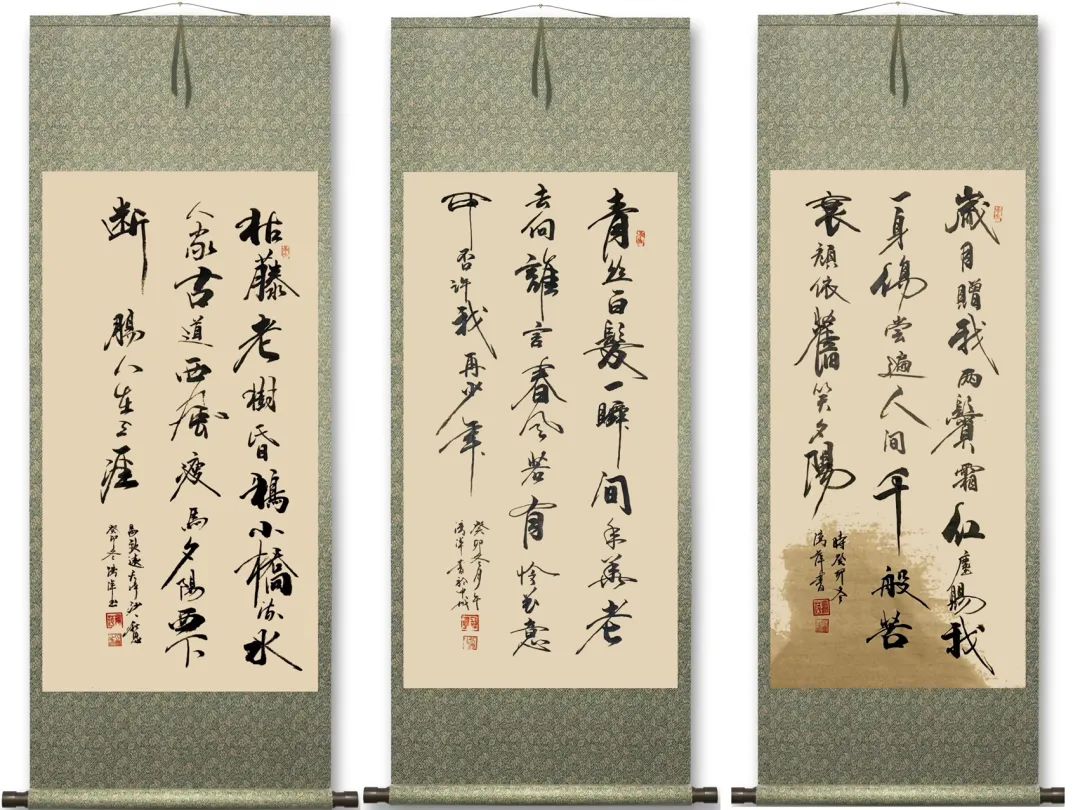 枯藤老樹昏鴉小橋流水
人家古道西風瘦馬夕陽西下
断腸人在天涯
馬致遠天净沙秋思
癸卯冬
青丝白髮一瞬間年華老
去向誰言春风若有憐花意
可否許我再少年
癸卯冬月
歲月贈我两鬢霜红塵賜我
一身傷嘗遍人間千般苦
衰顏依舊笑夕陽
時癸卯冬